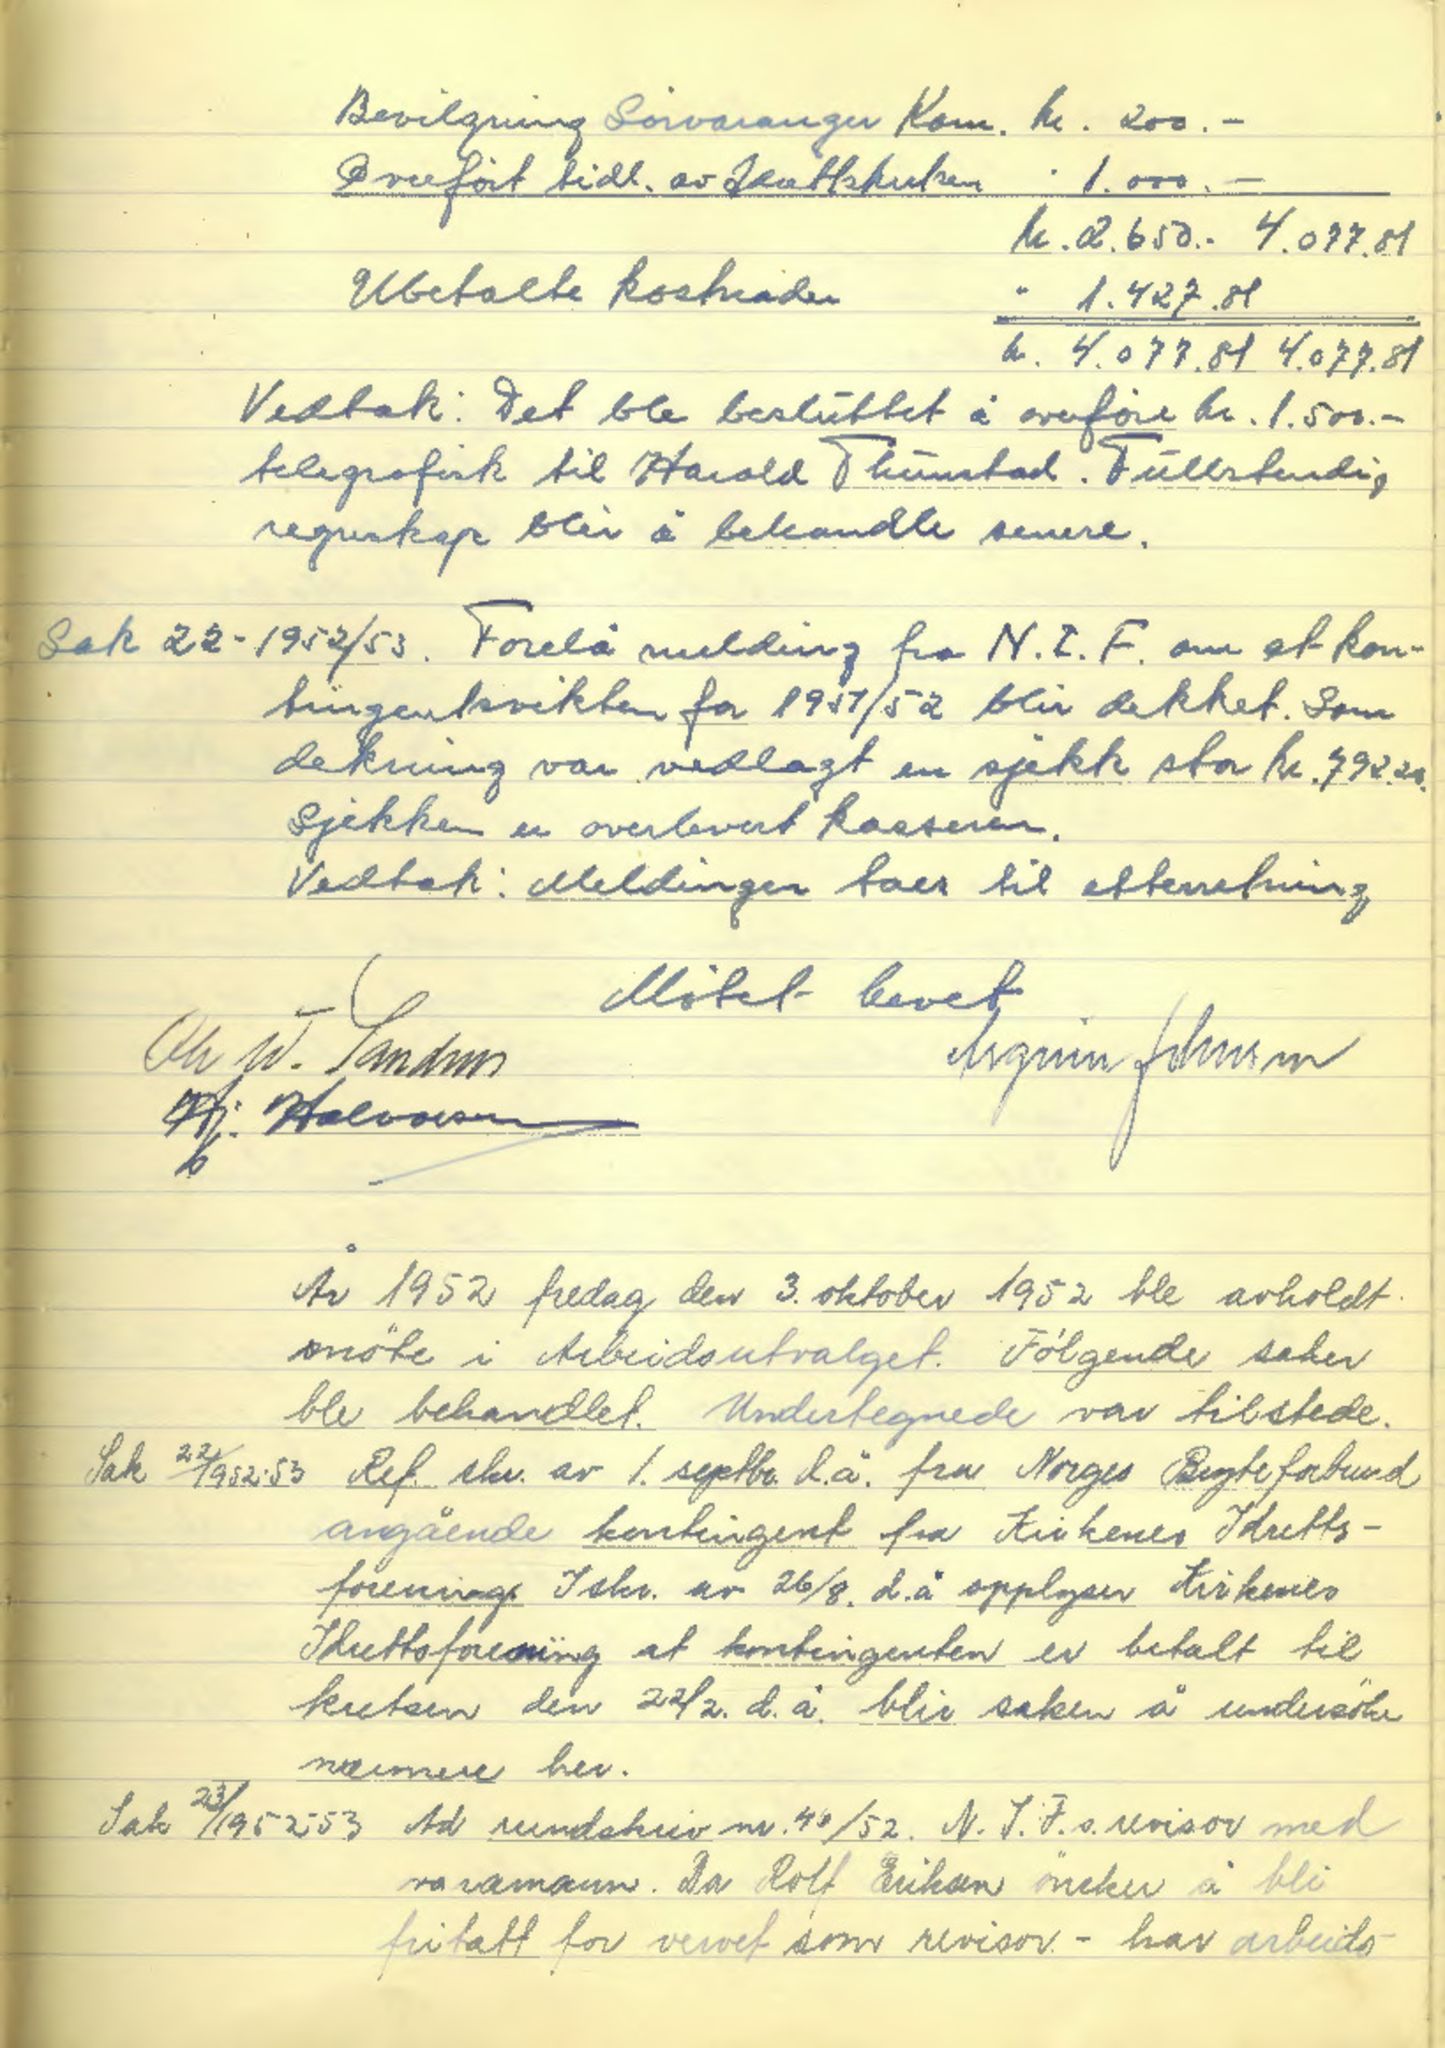 Bevilgning Sörvaranger Kom. kr. 200.-
Overfört tidl. av Idrettskretsen " 1.000.-
kr. 2.650.- 4.077.81
Ubetalte kostnader " 1.427.81
kr. 4.077.81 4.077.81
Vedtak: Det ble besluttet å overföre kr. 1.500.-
telegrafisk til Harald Thunstad. Fullstendig
regnskap blir å behandle senere.
Sak 22-1952/53. Forelå melding fra N.I.F. om at kon-
tingentsvikten for 1951/52 blir dekket. Som
dekning var vedlagt en sjekk stor kr. 792.20.
Sjekken er overlevert kasseren.
Vedtak: Meldingen taes til etterretning
Mötet hevet
W. Sandnes
Hj. Halvorsen
År 1952 fredag den 3. oktober 1952 ble avholdt
möte i Arbeidsutvalget. Fölgende saker
ble behandlet. Undertegnede var tilstede.
Sak 22/1952-53 Ref. skr. av 1. septbr. d.å. fra Norges Bryteforbund
angående kontingent fra Kirkenes Idretts-
forening. I skr. av 26/8. d.å opplyser Kirkenes
Idrettsforening at kontingenten er betalt til
kretsen den 22/2. d.å. blir saken å undersöke
nærmere her.
Sak 23/1952-53 Ad rundskriv nr. 40/52. N.I.F.s. revisor med
varamann. Da Rolf Eriksen önsker å bli
fritatt for vervet som revisor - har arbeids-